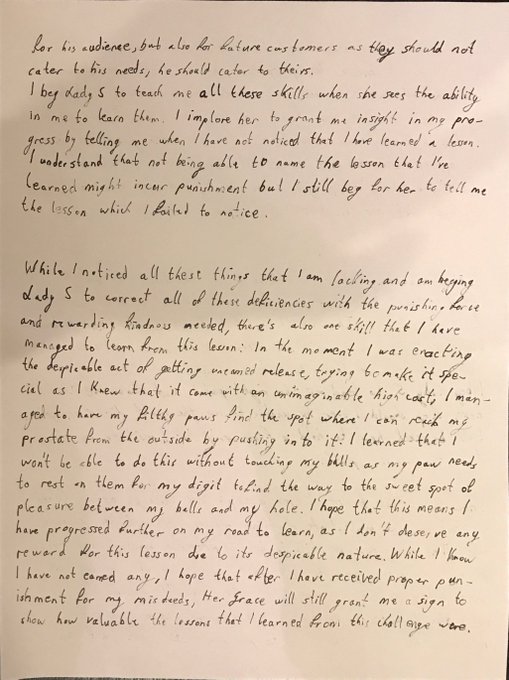 for his audience, but also for future customers as they should not
cater to his needs, he should cater to theirs.
I beg Lady S to teach me all these skills when she sees the ability
in me to learn them. I implore her to grant me insight in my pro-
gress by telling me when I have not noticed that I have learned a lesson.
I understand that not being able to name the lesson that I've
learned might incur punishment but I still beg for her to tell me
the lesson which I failed to notice.
While I noticed all these things that I am lacking and am begging
Lady S to correct all of these deficiencies with the punishing force
and rewarding kindness needed, there's also one skill that I have
managed to learn from this lesson: In the moment I was enacting
the despicable act of getting unearned release, trying to make it spe-
cial as I knew that it come with an unimaginable high cost, I man-
aged to have my filthy paws find the spot where I can reach my
prostate from the outside by pushing in to it. I learned that I
won't be able to do this without touching my balls as my paw needs
to rest on them for my digit to find the way to the sweet spot of
pleasure between my balls and my hole. I hope that this means I
have progressed further on my road to learn, as I don't deserve any
reward for this lesson due to its despicable nature. While I know
I have not earned any, I hope that after I have received proper pun-
ishment for my misdeeds, Her Grace will still grant me a sign to
show how valuable the lessons that I learned from this challenge were.